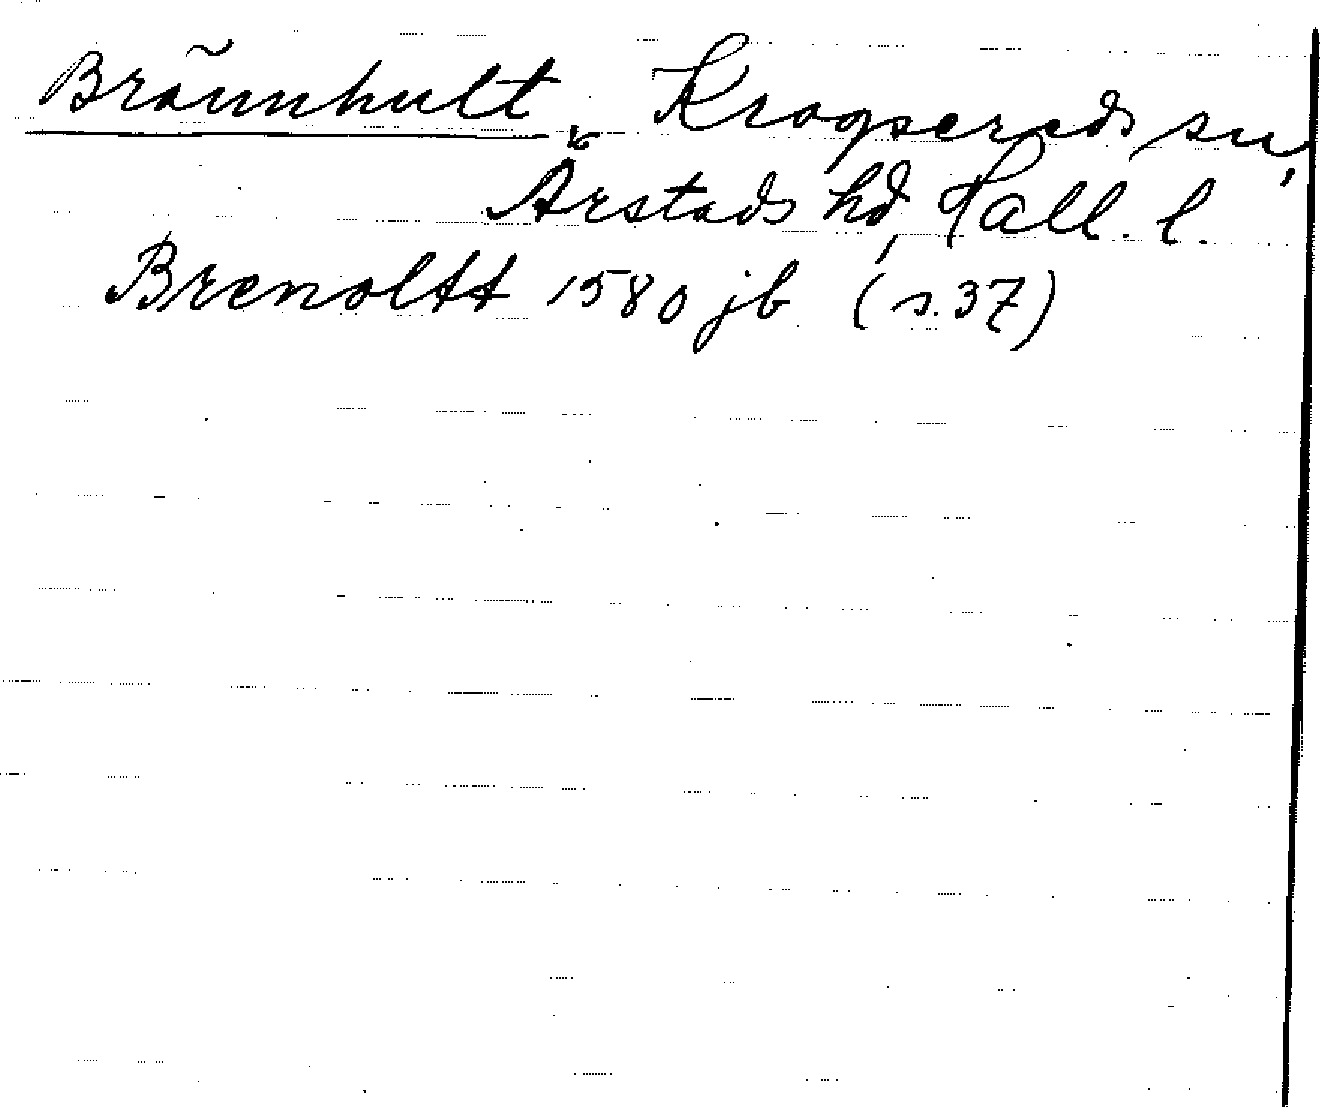 Brännhult, Krogsereds sn,
Årstads hd, Hall. l.
Brenoltt 1580 jb (s. 37)